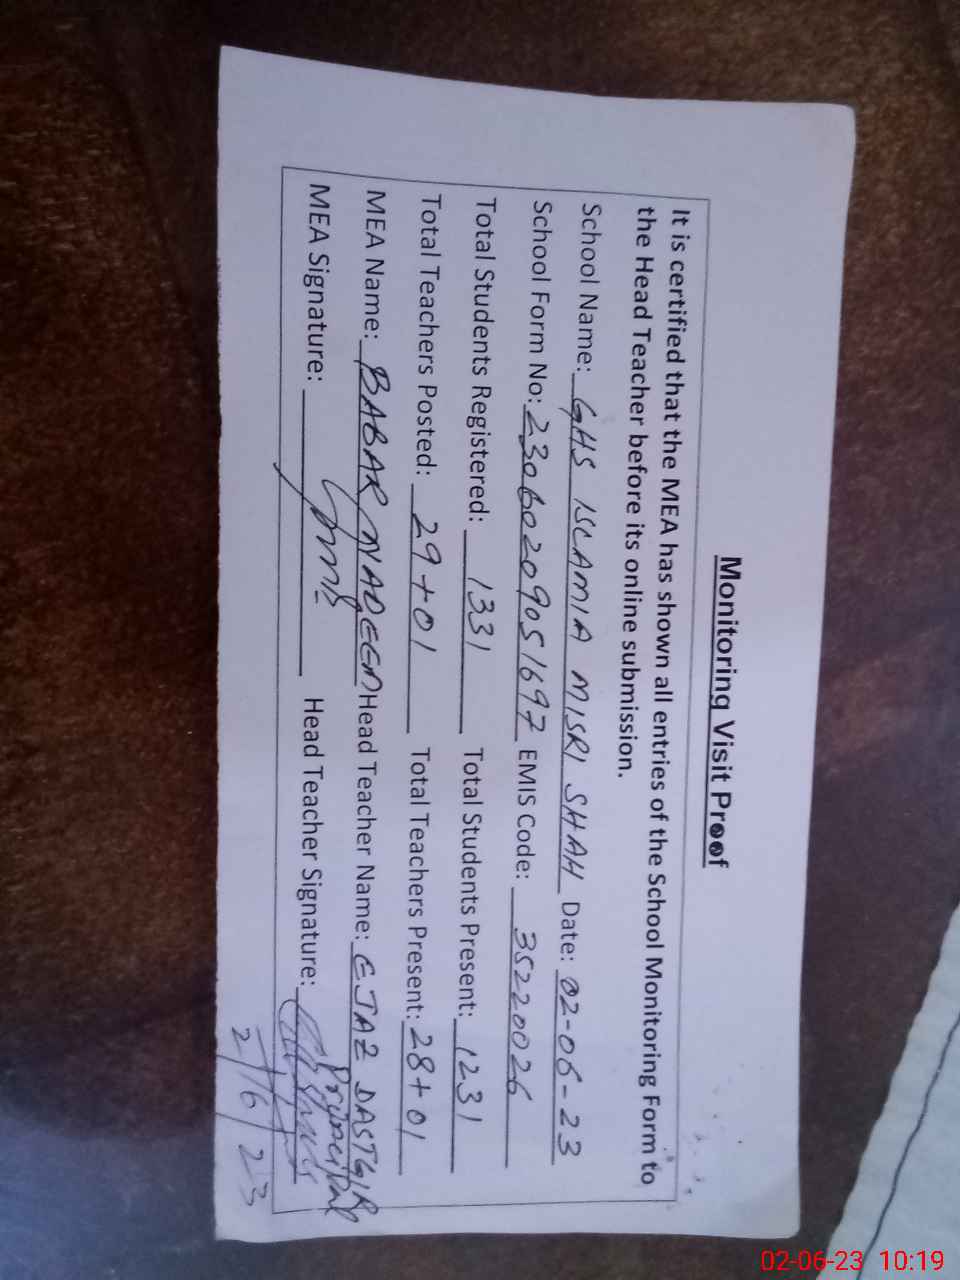 Monitoring Visit Proof
It is certified that the MEA has shown all entries of the School Monitoring Form to
the Head Teacher before its online submission.
School Name: GHS ISLAMIA MISRI SHAH Date: 02-06-23
School Form No: 23060209051697 EMIS Code: 35220026
Total Students Registered: 1331 Total Students Present: 1231
Total Teachers Posted: 29+01 Total Teachers Present: 28+01
MEA Name: BABAR NADEEM Head Teacher Name: EJAZ DASTGIR
Principal
MEA Signature: Head Teacher Signature:
2/6/23
02-06-23 10:19